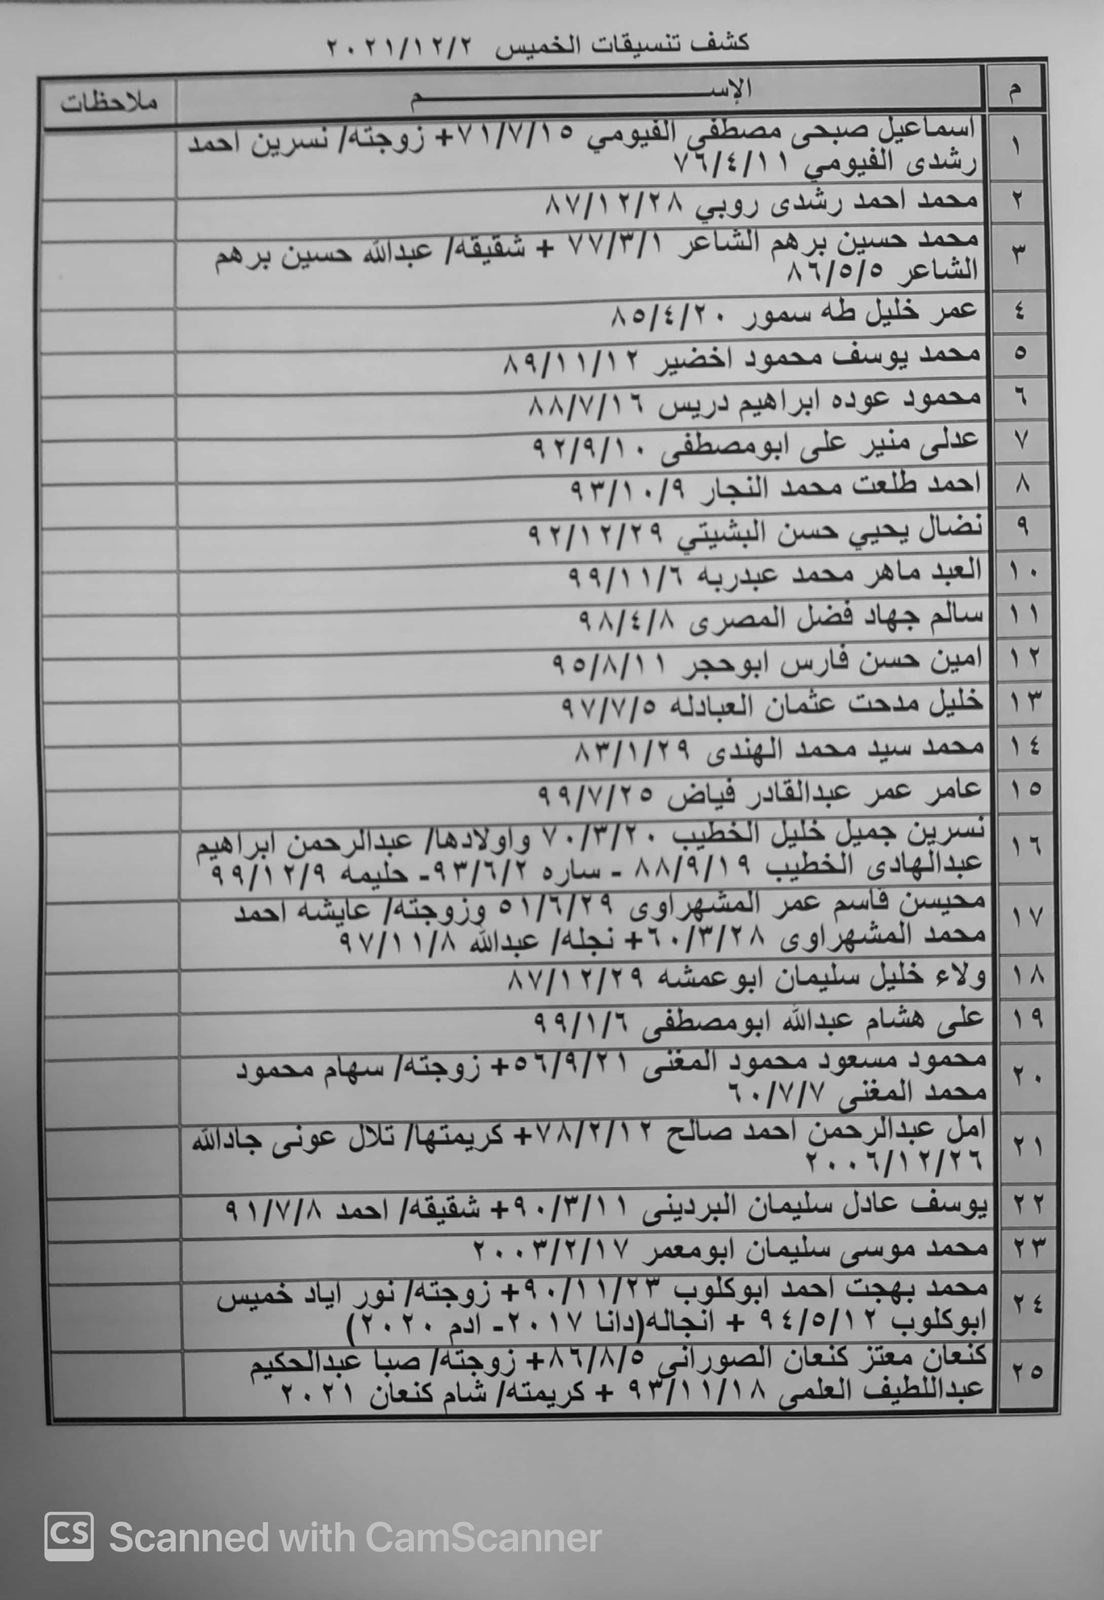 كشف تنسيقات الخميس ٢٠٢١/١٢/٢
م الإســـــــم ملاحظات
١ اسماعيل صبحى مصطفى الفيومي ٧١/٧/١٥+ زوجته/ نسرين احمد
رشدى الفيومي ٧٦/٤/١١
٢ محمد احمد رشدى روبي ٨٧/١٢/٢٨
٣ محمد حسين برهم الشاعر ٧٧/٣/١ + شقيقه/ عبدالله حسين برهم
الشاعر ٨٦/٥/٥
٤ عمر خليل طه سمور ٨٥/٤/٢٠
٥ محمد يوسف محمود اخضير ٨٩/١١/١٢
٦ محمود عوده ابراهيم دريس ٨٨/٧/١٦
٧ عدلى منير على ابومصطفى ٩٢/٩/١٠
٨ احمد طلعت محمد النجار ٩٣/١٠/٩
٩ نضال يحيي حسن البشيتي ٩٢/١٢/٢٩
١٠ العبد ماهر محمد عبدربه ٩٩/١١/٦
١١ سالم جهاد فضل المصرى ٩٨/٤/٨
١٢ امين حسن فارس ابوحجر ٩٥/٨/١١
١٣ خليل مدحت عثمان العبادله ٩٧/٧/٥
١٤ محمد سيد محمد الهندى ٨٣/١/٢٩
١٥ عامر عمر عبدالقادر فياض ٩٩/٧/٢٥
١٦ نسرين جميل خليل الخطيب ٧٠/٣/٢٠ واولادها/ عبدالرحمن ابراهيم
عبدالهادى الخطيب ٨٨/٩/١٩ - ساره ٩٣/٦/٢- حليمه ٩٩/١٢/٩
١٧ محيسن قاسم عمر المشهراوى ٥١/٦/٢٩ وزوجته/ عايشه احمد
محمد المشهراوى ٦٠/٣/٢٨+ نجله/ عبدالله ٩٧/١١/٨
١٨ ولاء خليل سليمان ابوعمشه ٨٧/١٢/٢٩
١٩ على هشام عبدالله ابومصطفى ٩٩/١/٦
٢٠ محمود مسعود محمود المغنى ٥٦/٩/٢١+ زوجته/ سهام محمود
محمد المغنى ٦٠/٧/٧
٢١ امل عبدالرحمن احمد صالح ٧٨/٢/١٢+ كريمتها/ تلال عونى جادالله
٢٠٠٦/١٢/٢٦
٢٢ يوسف عادل سليمان البردينى ٩٠/٣/١١+ شقيقه/ احمد ٩١/٧/٨
٢٣ محمد موسى سليمان ابومعمر ٢٠٠٣/٢/١٧
٢٤ محمد بهجت احمد ابوكلوب ٩٠/١١/٢٣+ زوجته/ نور اياد خميس
ابوكلوب ٩٤/٥/١٢ + انجاله(دانا ٢٠١٧- ادم ٢٠٢٠)
٢٥ كنعان معتز كنعان الصورانى ٨٦/٨/٥+ زوجته/ صبا عبدالحكيم
عبداللطيف العلمى ٩٣/١١/١٨ + كريمته/ شام كنعان ٢٠٢١
CS Scanned with CamScanner